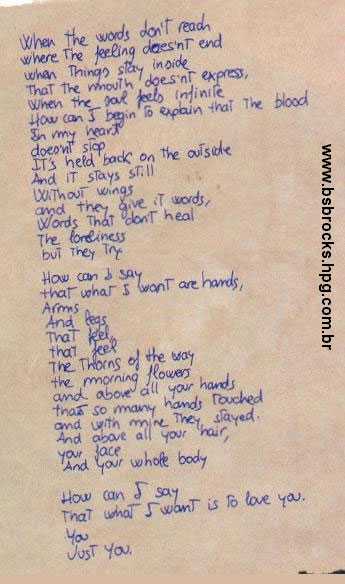 When the words don't reach
where the feeling does'nt end
when things stay inside
That the mouth does'nt express,
When the soul feels infinite
How can I begin to explain that the blood
In my heart
does'nt stop
It's held back on the outside
And it stays still
Without wings
and they give it words,
Words that don't heal
The loneliness
but they try
How can I say
that what I want are hands,
Arms
And legs
That feel,
that feel
The Thorns of the way
the morning flowers
and above all your hands
that so many hands touched
and with mine they stayed.
And above all your hair,
your face
And your whole body
How can I say
That what I want is to love you.
You
Just you.
www.bsbrocks.hpg.com.br